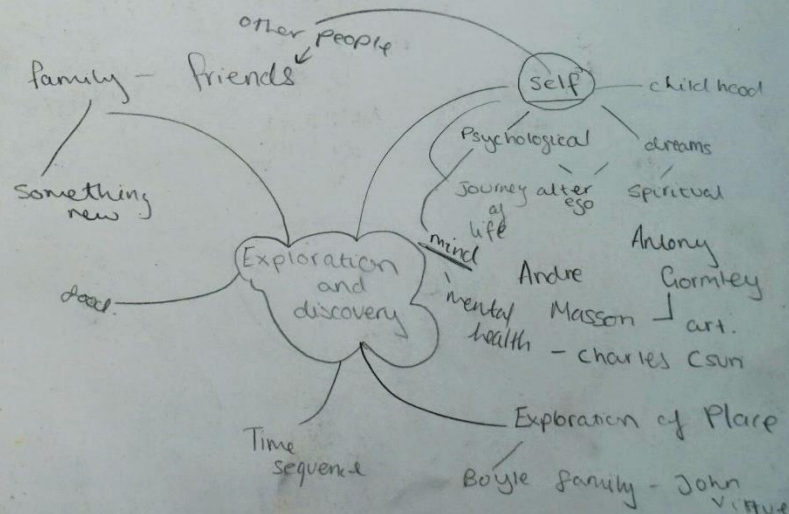 other people
family - friends
self
childhood
Psychological
dreams
Something
new
Journey
of
life
alter
ego
Spiritual
mind
mental
health
Exploration
and
discovery
Antony
Gormley
Andre
Masson
art.
- Charles Csuri
food.
Time
sequence
Exploration of Place
Boyle family - John
Virtue